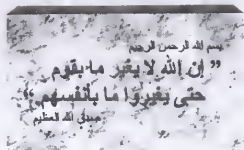 بسم الله الرحمن الرحيم
" إن الله لا يغير ما بقوم
حتى يغيروا ما بأنفسهم "
صدق الله العظيم